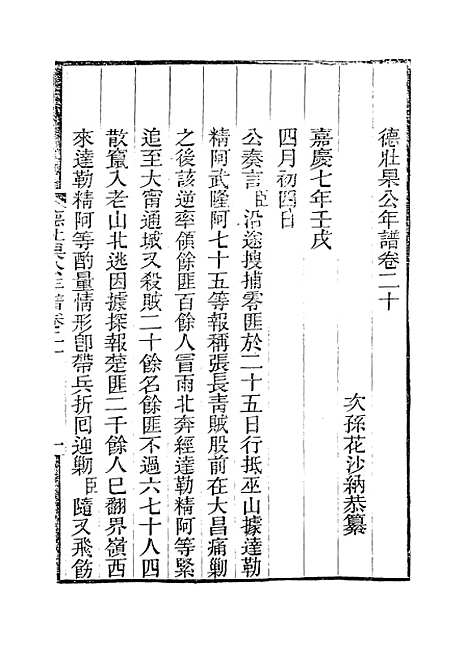 德壯果公年譜卷二十
次孫花沙納恭纂
嘉慶七年壬戌
四月初四日
公奏言臣沿途搜捕零匪於二十五日行抵巫山據達勒
精阿武隆阿七十五等報稱張長靑賊股前在大昌痛勦
之後該逆率領餘匪百餘人冒雨北奔經達勒精阿等緊
追至大甯通城又殺賊二十餘名餘匪不過六七十人四
散竄入老山北逃因據探報楚匪二千餘人已翻界嶺西
來達勒精阿等酌量情形卽帶兵折回迎勦臣隨又飛飭